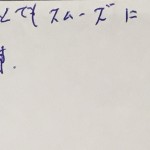 とてもスムーズに